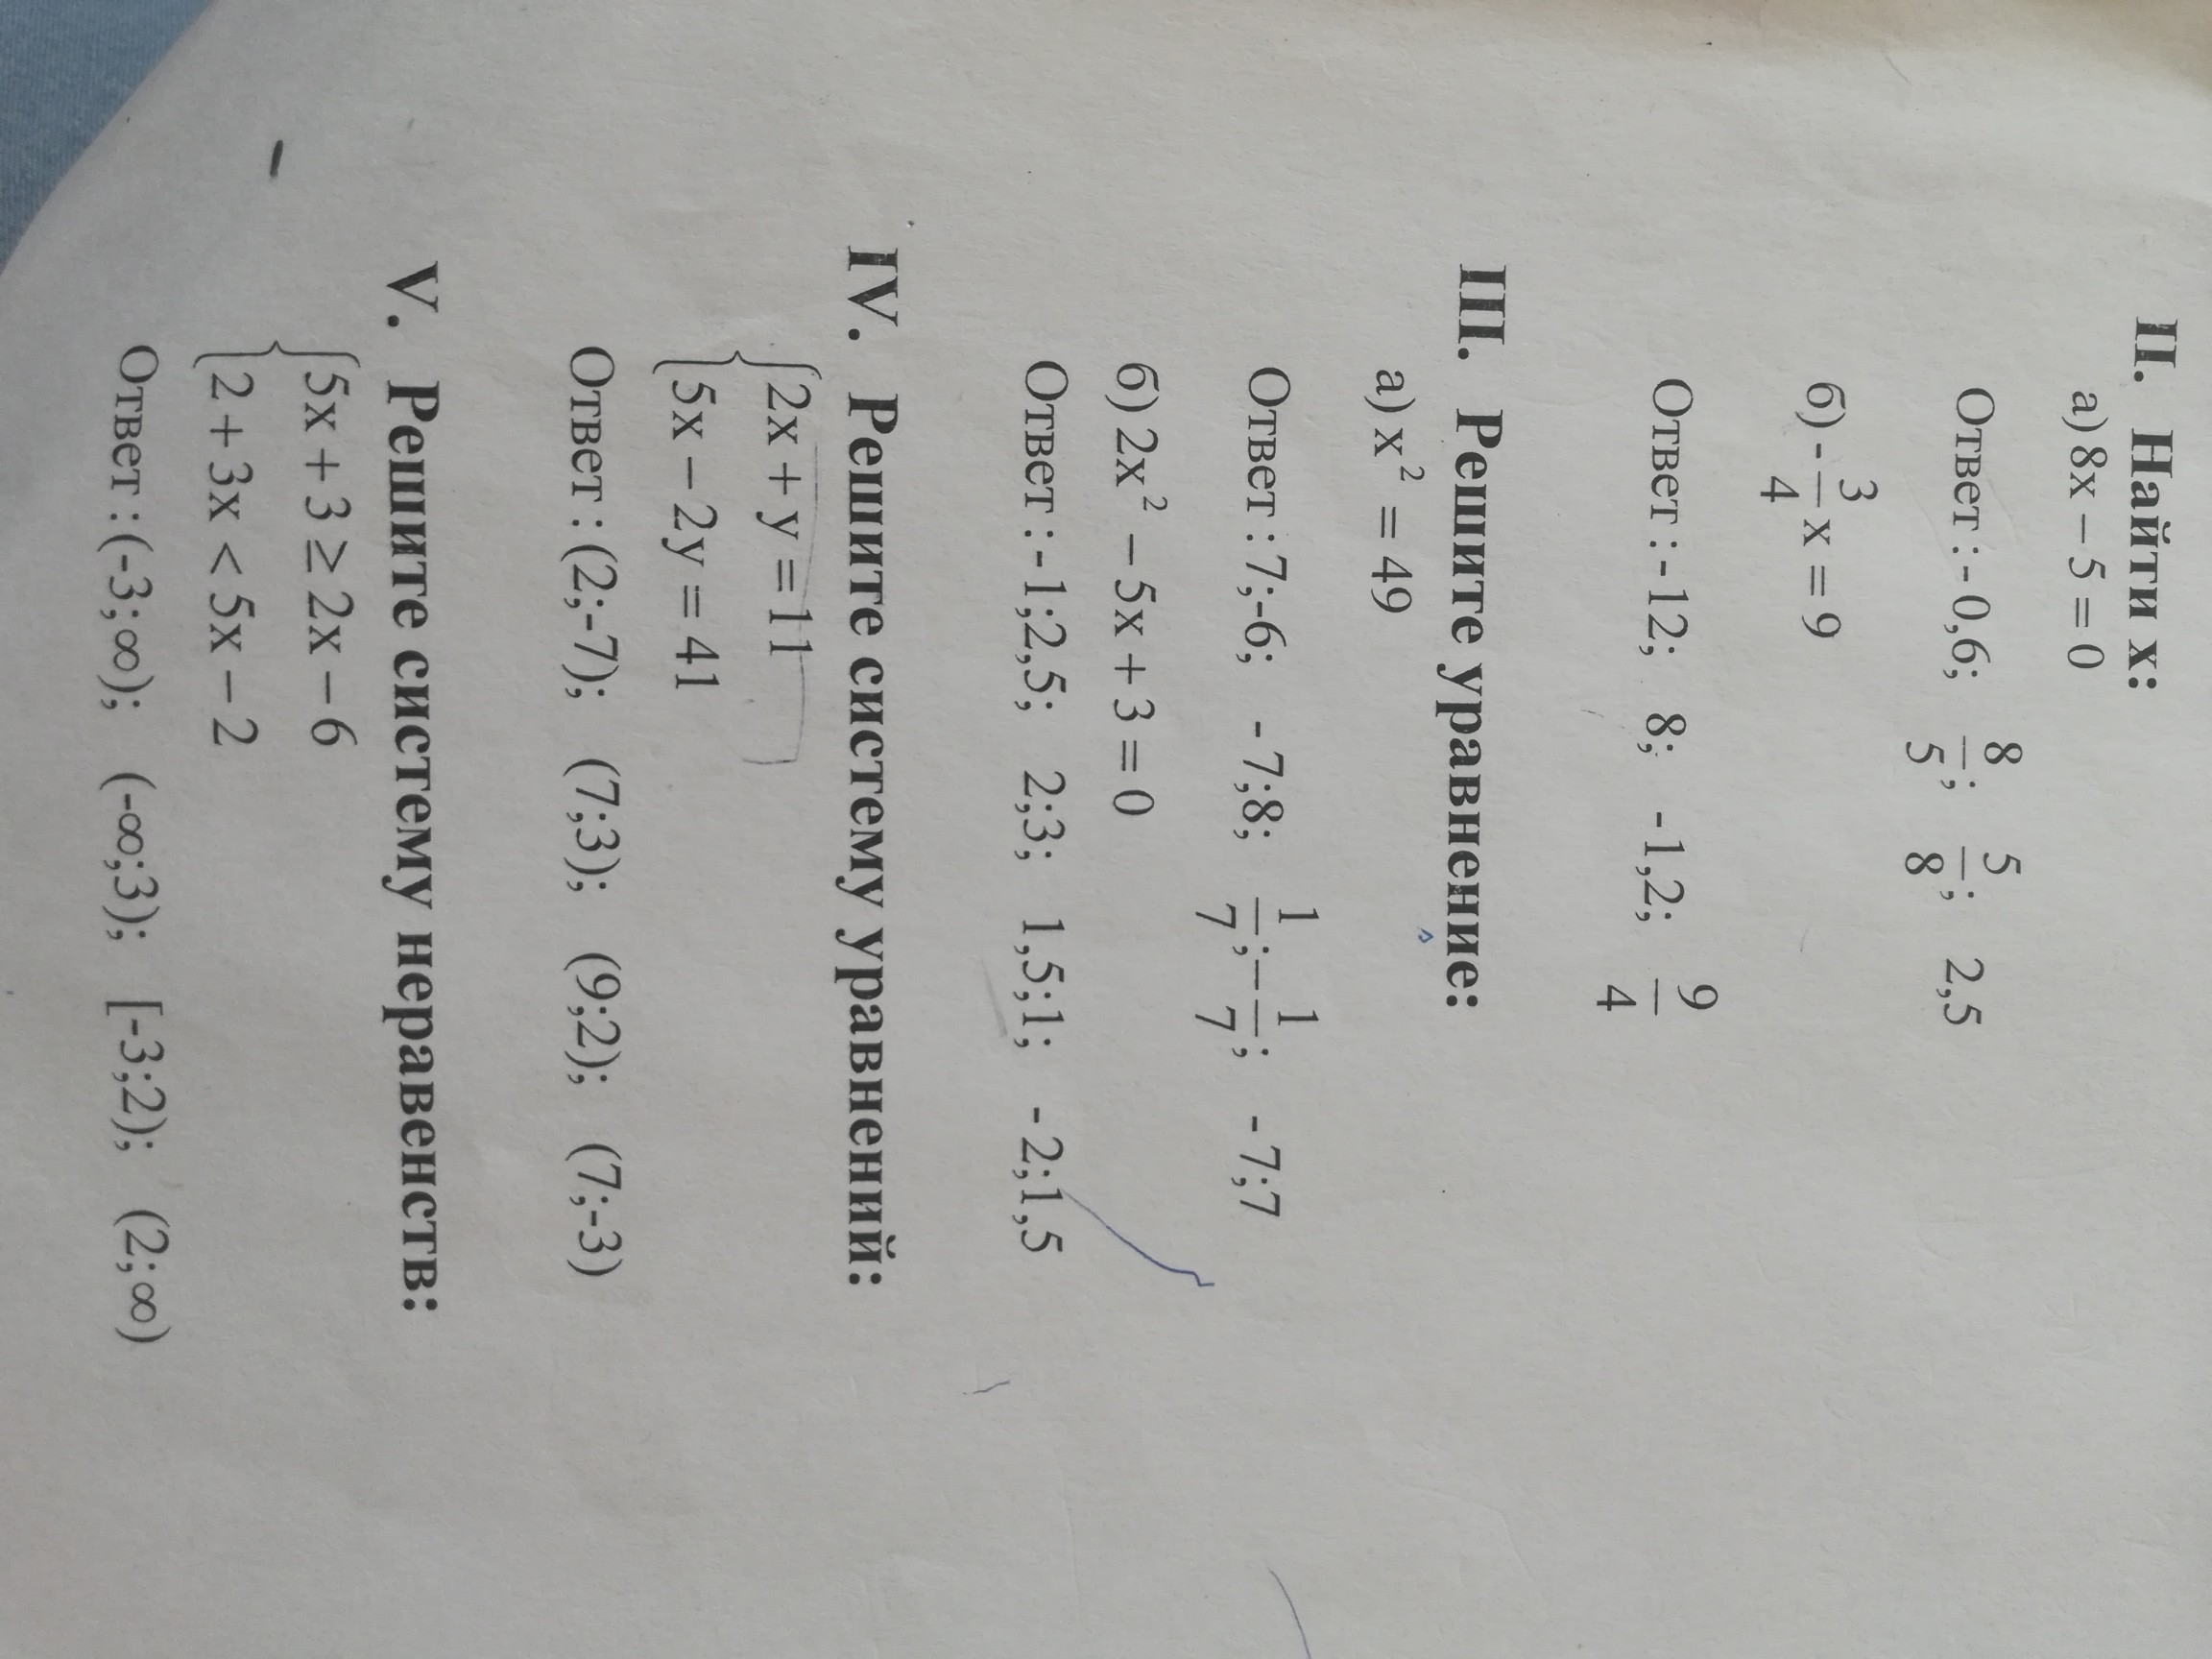 II. Найти x:
а) 8x − 5 = 0
Ответ : - 0,6; 8/5; 5/8; 2,5
б) - 3/4 x = 9
Ответ : - 12; 8; -1,2; 9/4
III. Решите уравнение:
а) x² = 49
Ответ : 7;-6; -7;8; 1/7;−1/7; -7;7
б) 2x² − 5x + 3 = 0
Ответ : -1;2,5; 2;3; 1,5;1; -2;1,5
IV. Решите систему уравнений:
{2x + y = 11
5x − 2y = 41
Ответ : (2;-7); (7;3); (9;2); (7;-3)
V. Решите систему неравенств:
{5x + 3 ≥ 2x − 6
2 + 3x < 5x − 2
Ответ : (-3;∞); (-∞;3); [-3;2); (2;∞)